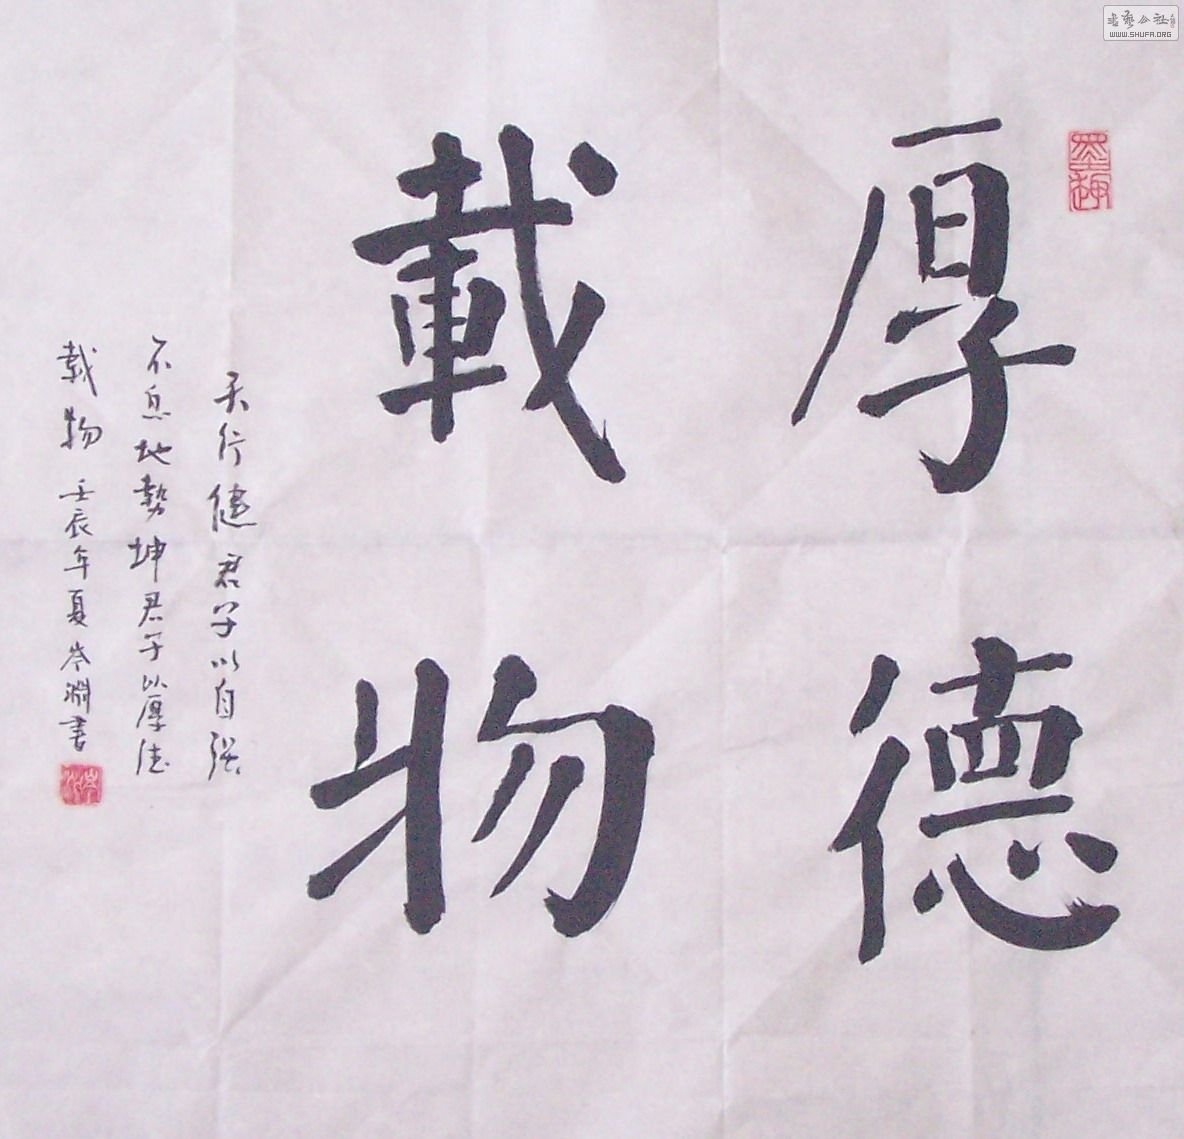 厚德
載物
天行健君子以自强
不息地勢坤君子以厚德
载物 壬辰年夏岑淵書
墨趣
書藝公社
WWW.SHUFA.ORG